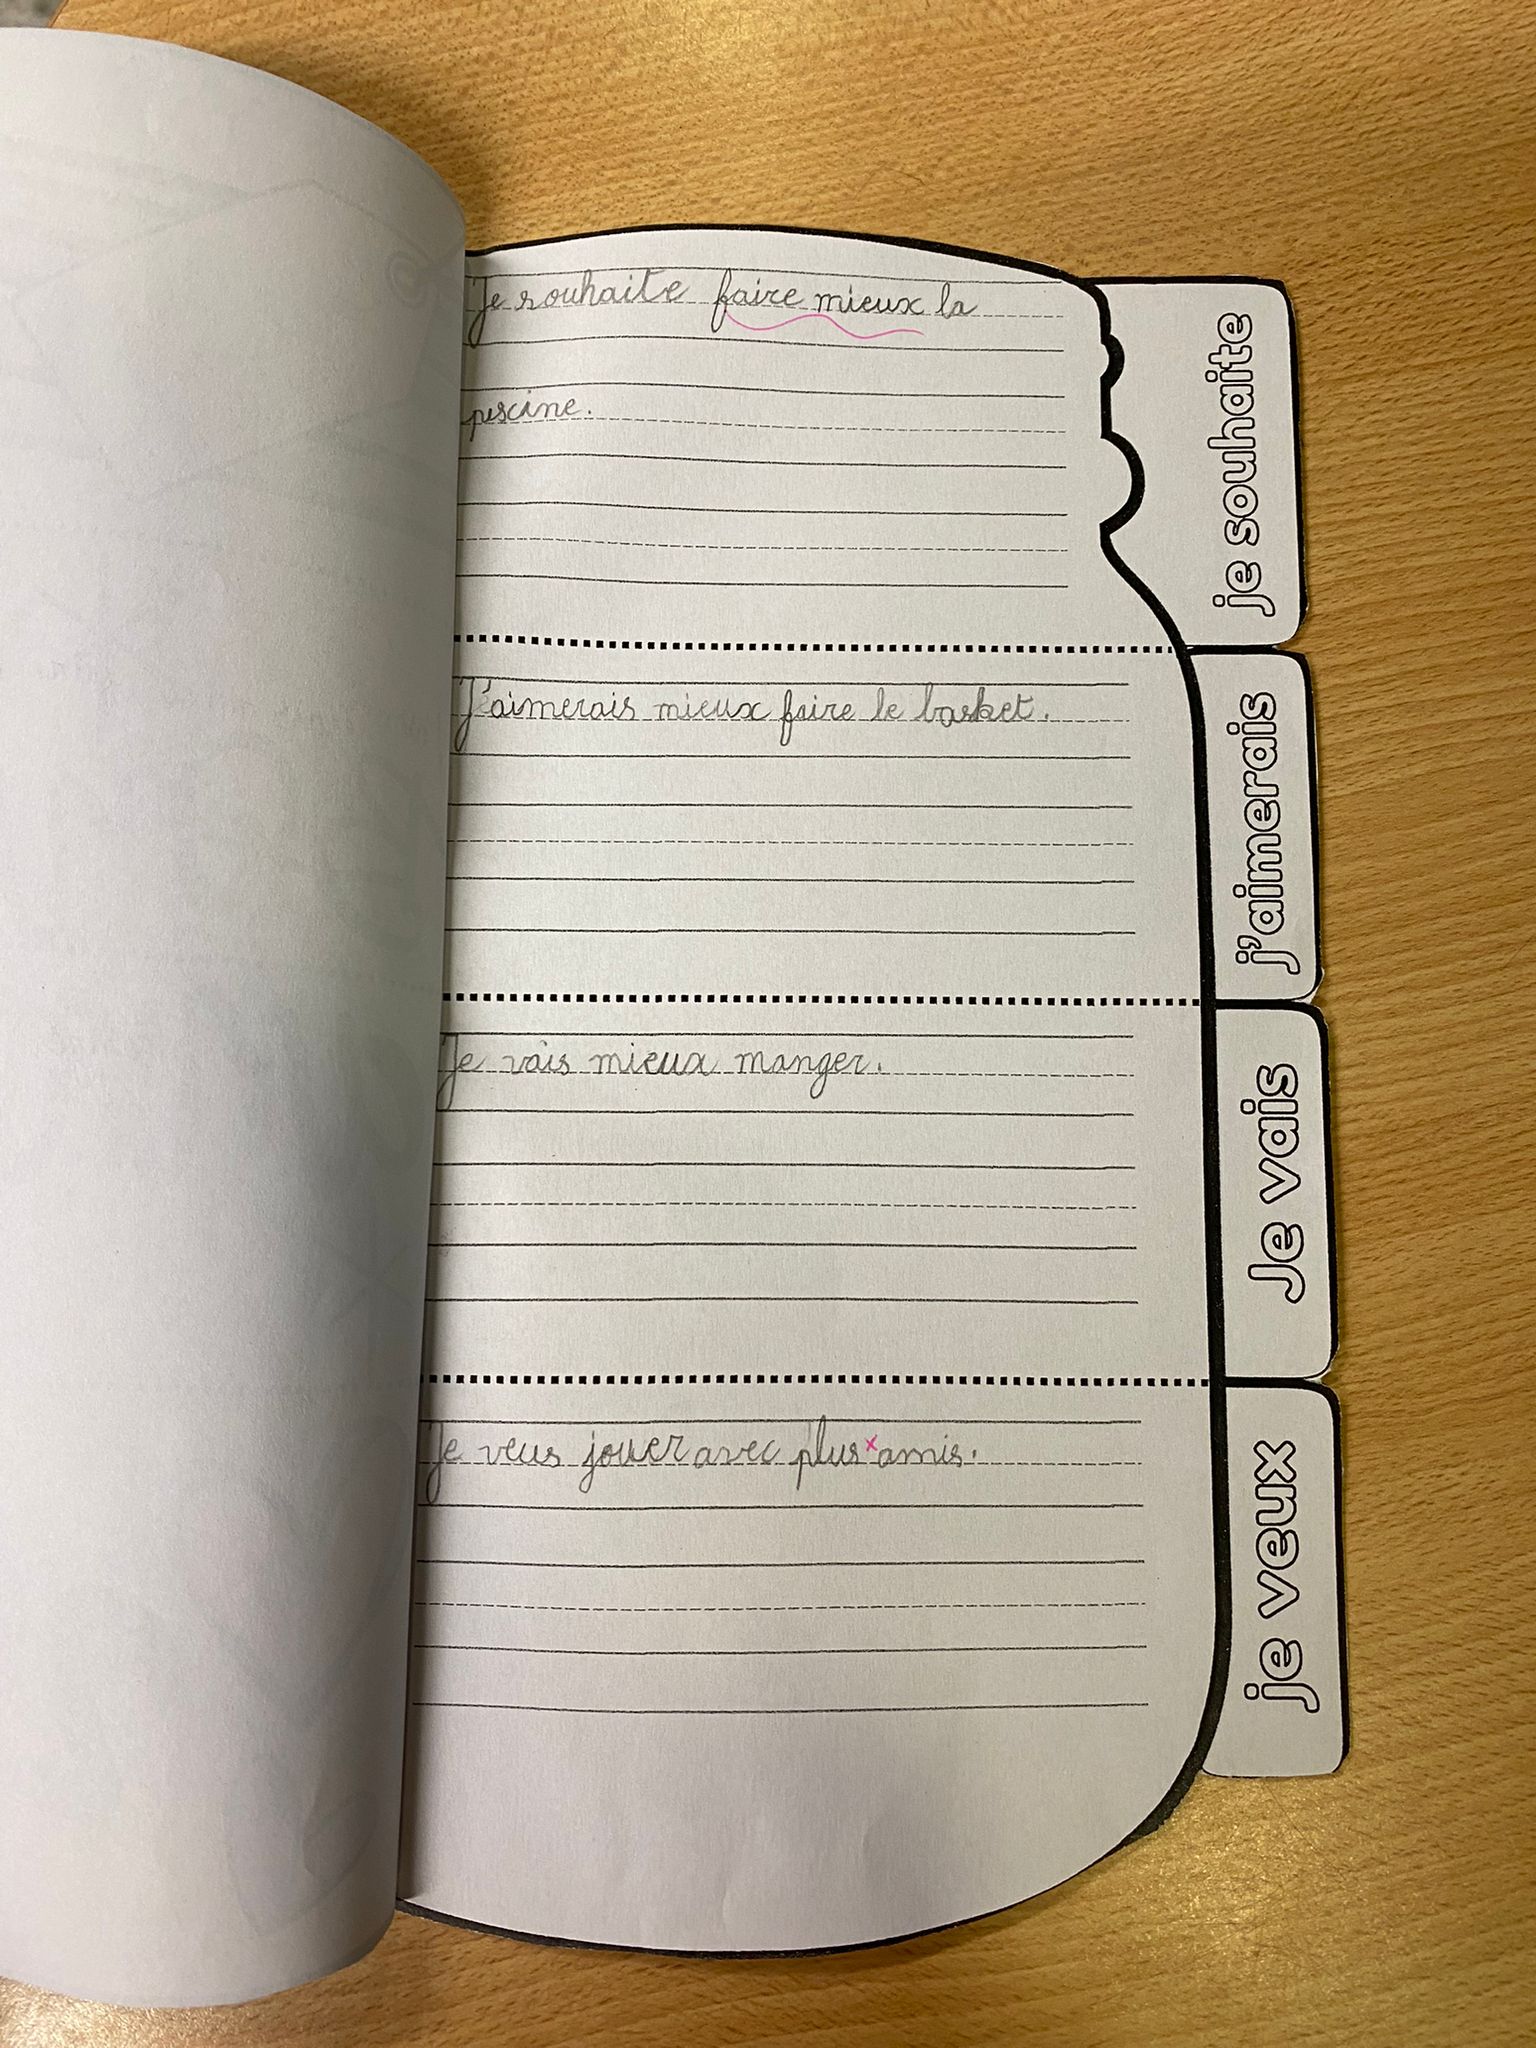 Je souhaite faire mieux la
piscine.
je souhaite
J'aimerais mieux faire le basket.
j'aimerais
Je vais mieux manger.
Je vais
Je veus jouer avec plus x amis.
je veux